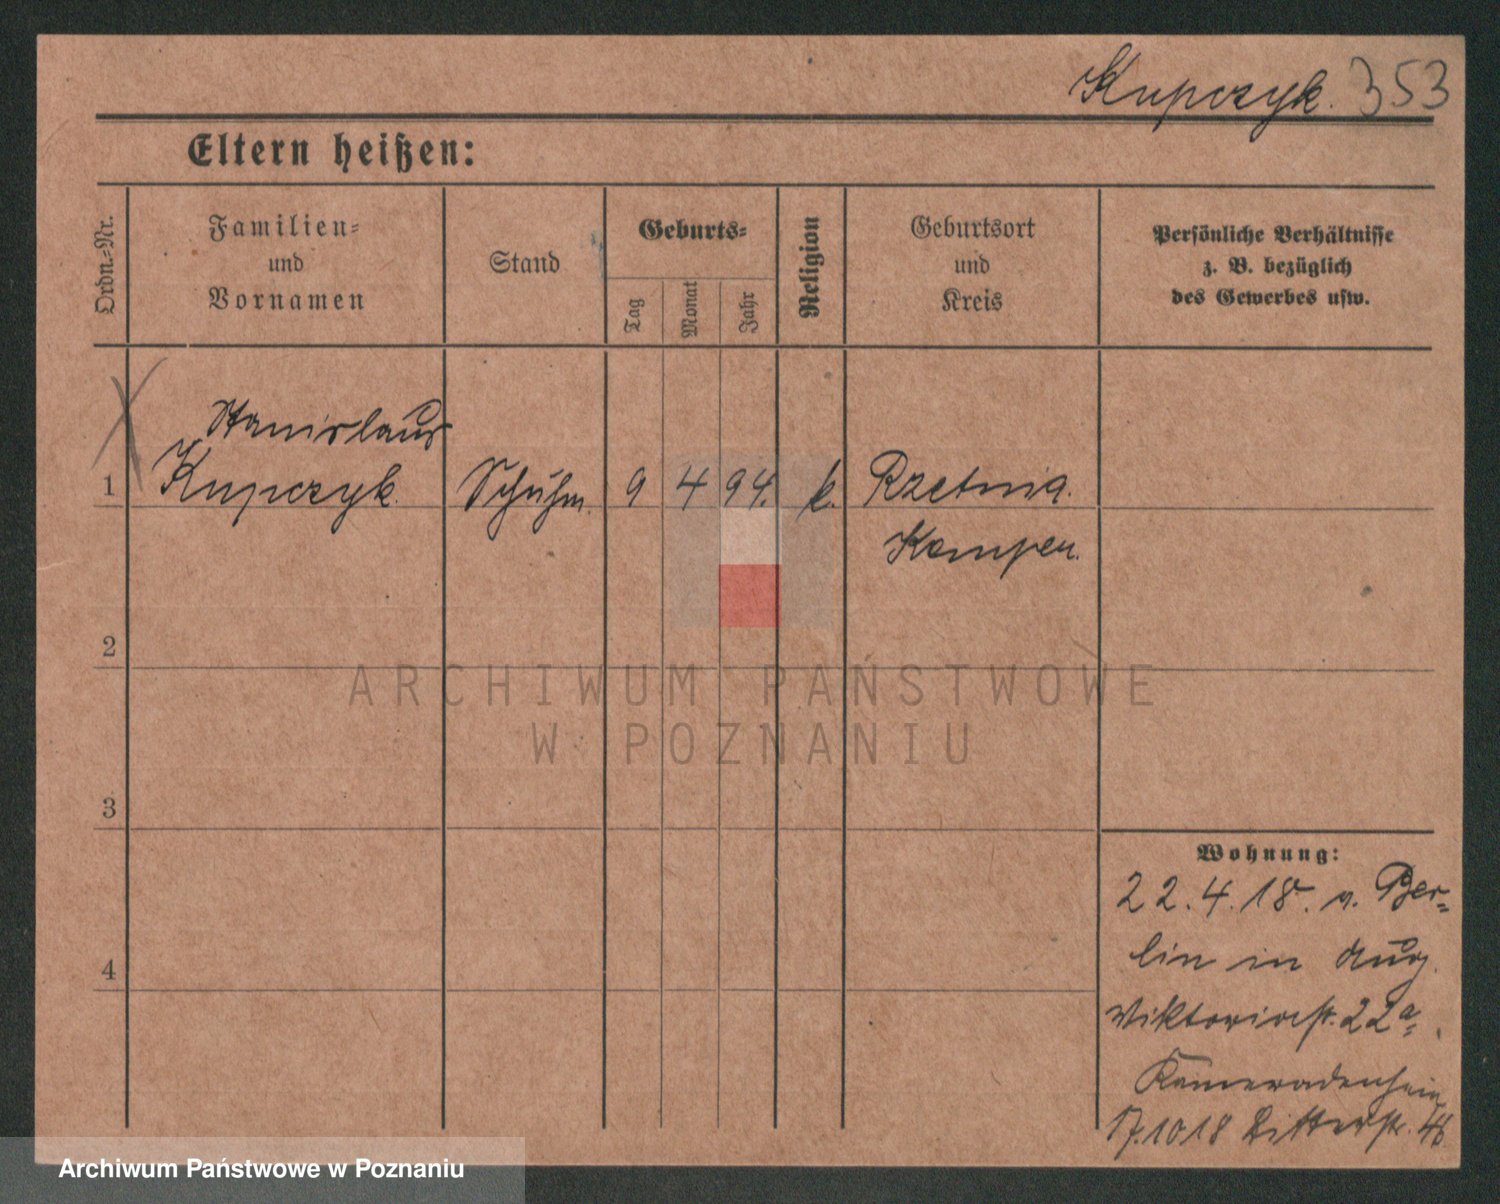 Kupczyk. 353
Eltern heißen:
Ordn.-Nr.
Familien-
und
Vornamen
Stand
Geburts-
Tag
Monat
Jahr
Religion
Geburtsort
und
Kreis
Persönliche Verhältnisse
z. B. bezüglich
des Gewerbes usw.
Stanislaus
1 Kupczyk. Schuhm. 9 4 94. k. Rzetnia.
Kempen.
2
3
4
Wohnung:
22.4.18. v. Ber-
lin in
Viktoriastr. 22a
Kameradenheim
17.10 18 Ritterstr.
ARCHIWUM PAŃSTWOWE
W POZNANIU
Archiwum Państwowe w Poznaniu